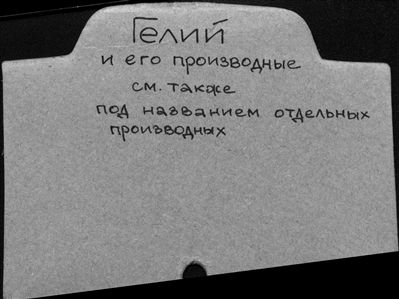 Гелий
и его производные
см. также
под названием отдельных
производных